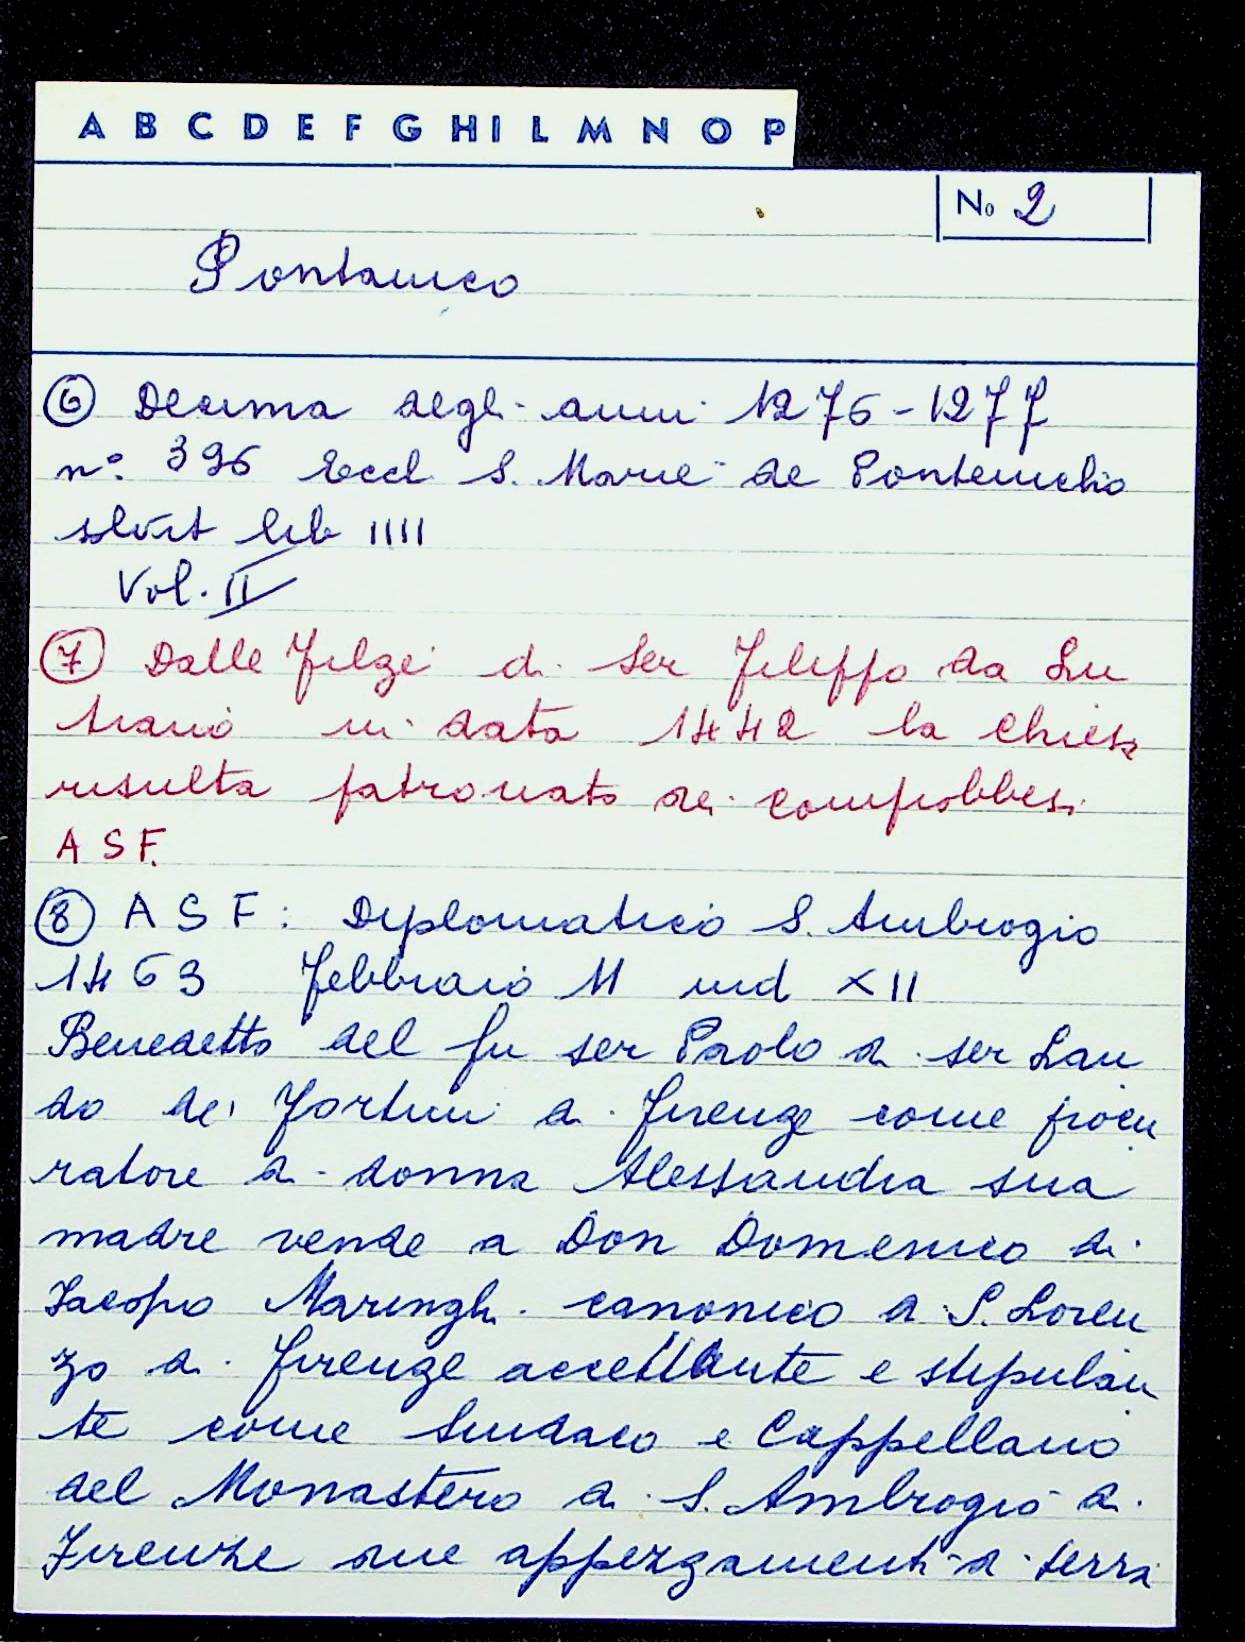 A B C D E F G H I L M N O P
No 2
Pontanico
⑥ Decima degli anni 1276-1277
n° 396 Eccl S. Marie de Ponteniclio
solvit lib IIII
Vol. II
⑦ Dalle filze di Ser Filippo da Lu
tiano in data 1442 la chiesa
risulta patronato dei Compiobbesi
A S F.
⑧ A S F: Diplomatico S. Ambrogio
1463 Febbraio 11 ind XII
Benedetto del fu ser Paolo di ser Lan
do dei Fortini di Firenze come procu
ratore di donna Alessandra sua
madre vende a Don Domenico di
Iacopo Maringhi canonico di S. Loren
zo di Firenze accettante e stipulan
te come Sindaco e Cappellano
del Monastero di S. Ambrogio di
Firenze due appezzamenti di terra